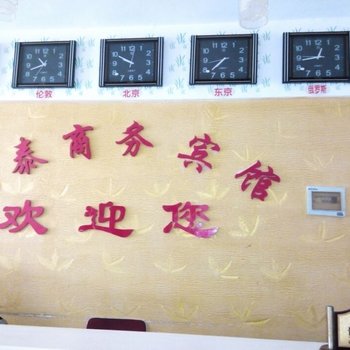 伦敦 北京 东京 俄罗斯
泰商务宾馆
欢迎您